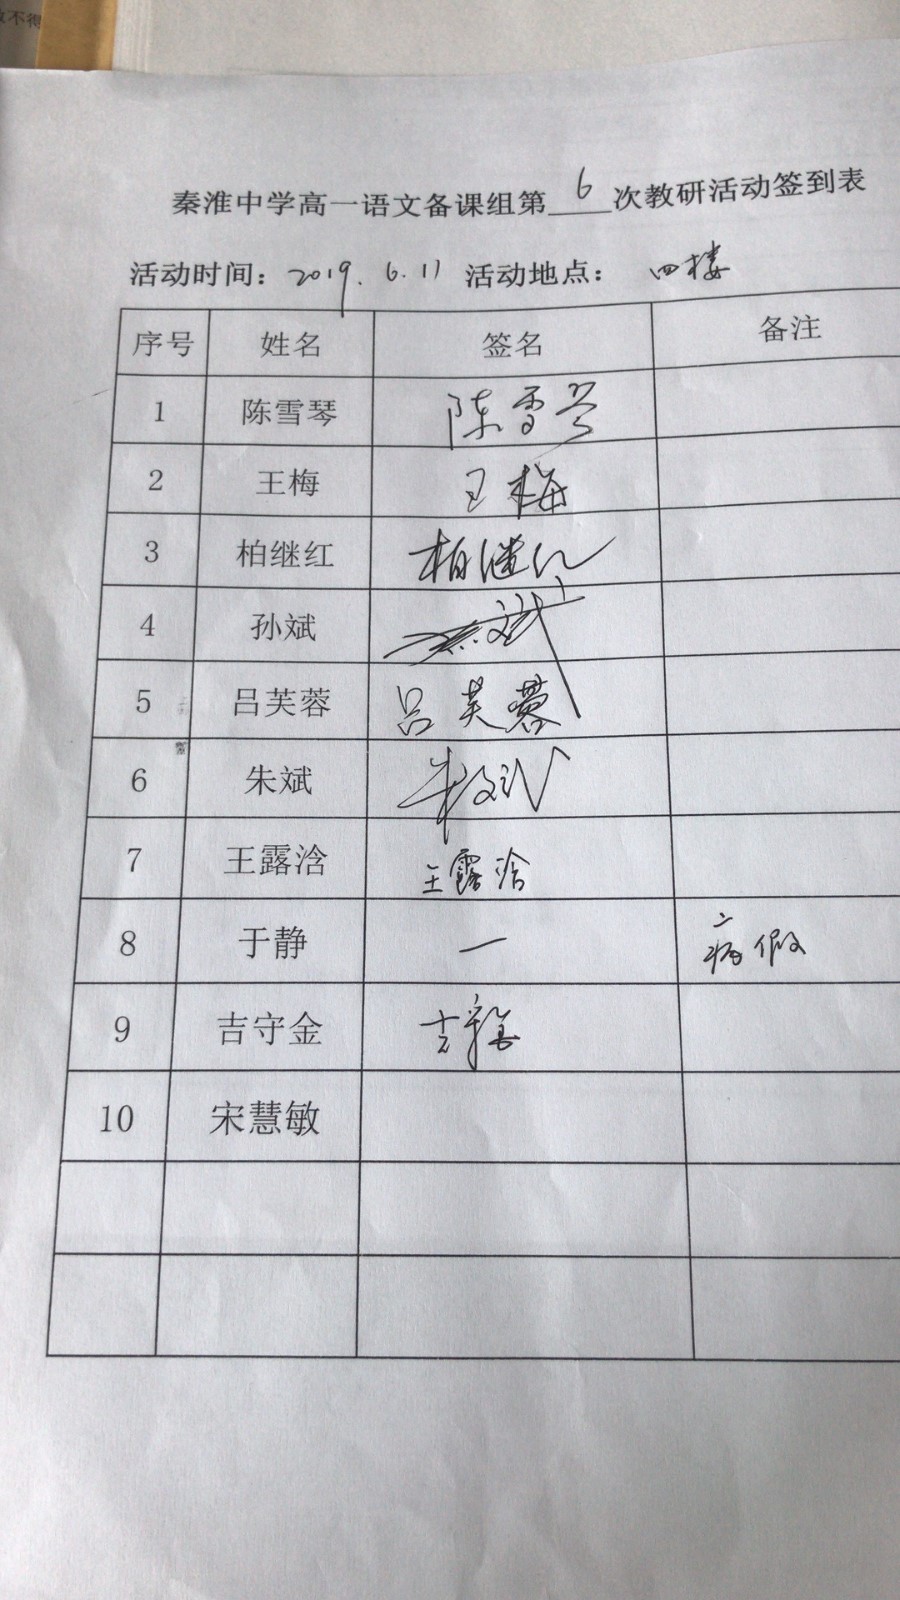 秦淮中学高一语文备课组第6次教研活动签到表
活动时间：2019.6.11 活动地点： 四楼
序号 姓名 签名 备注
1 陈雪琴 陈雪琴
2 王梅 王梅
3 柏继红 柏继红
4 孙斌 孙斌
5 吕芙蓉 吕芙蓉
6 朱斌 朱斌
7 王露浛 王露浛
8 于静 一 病假
9 吉守金 吉守金
10 宋慧敏